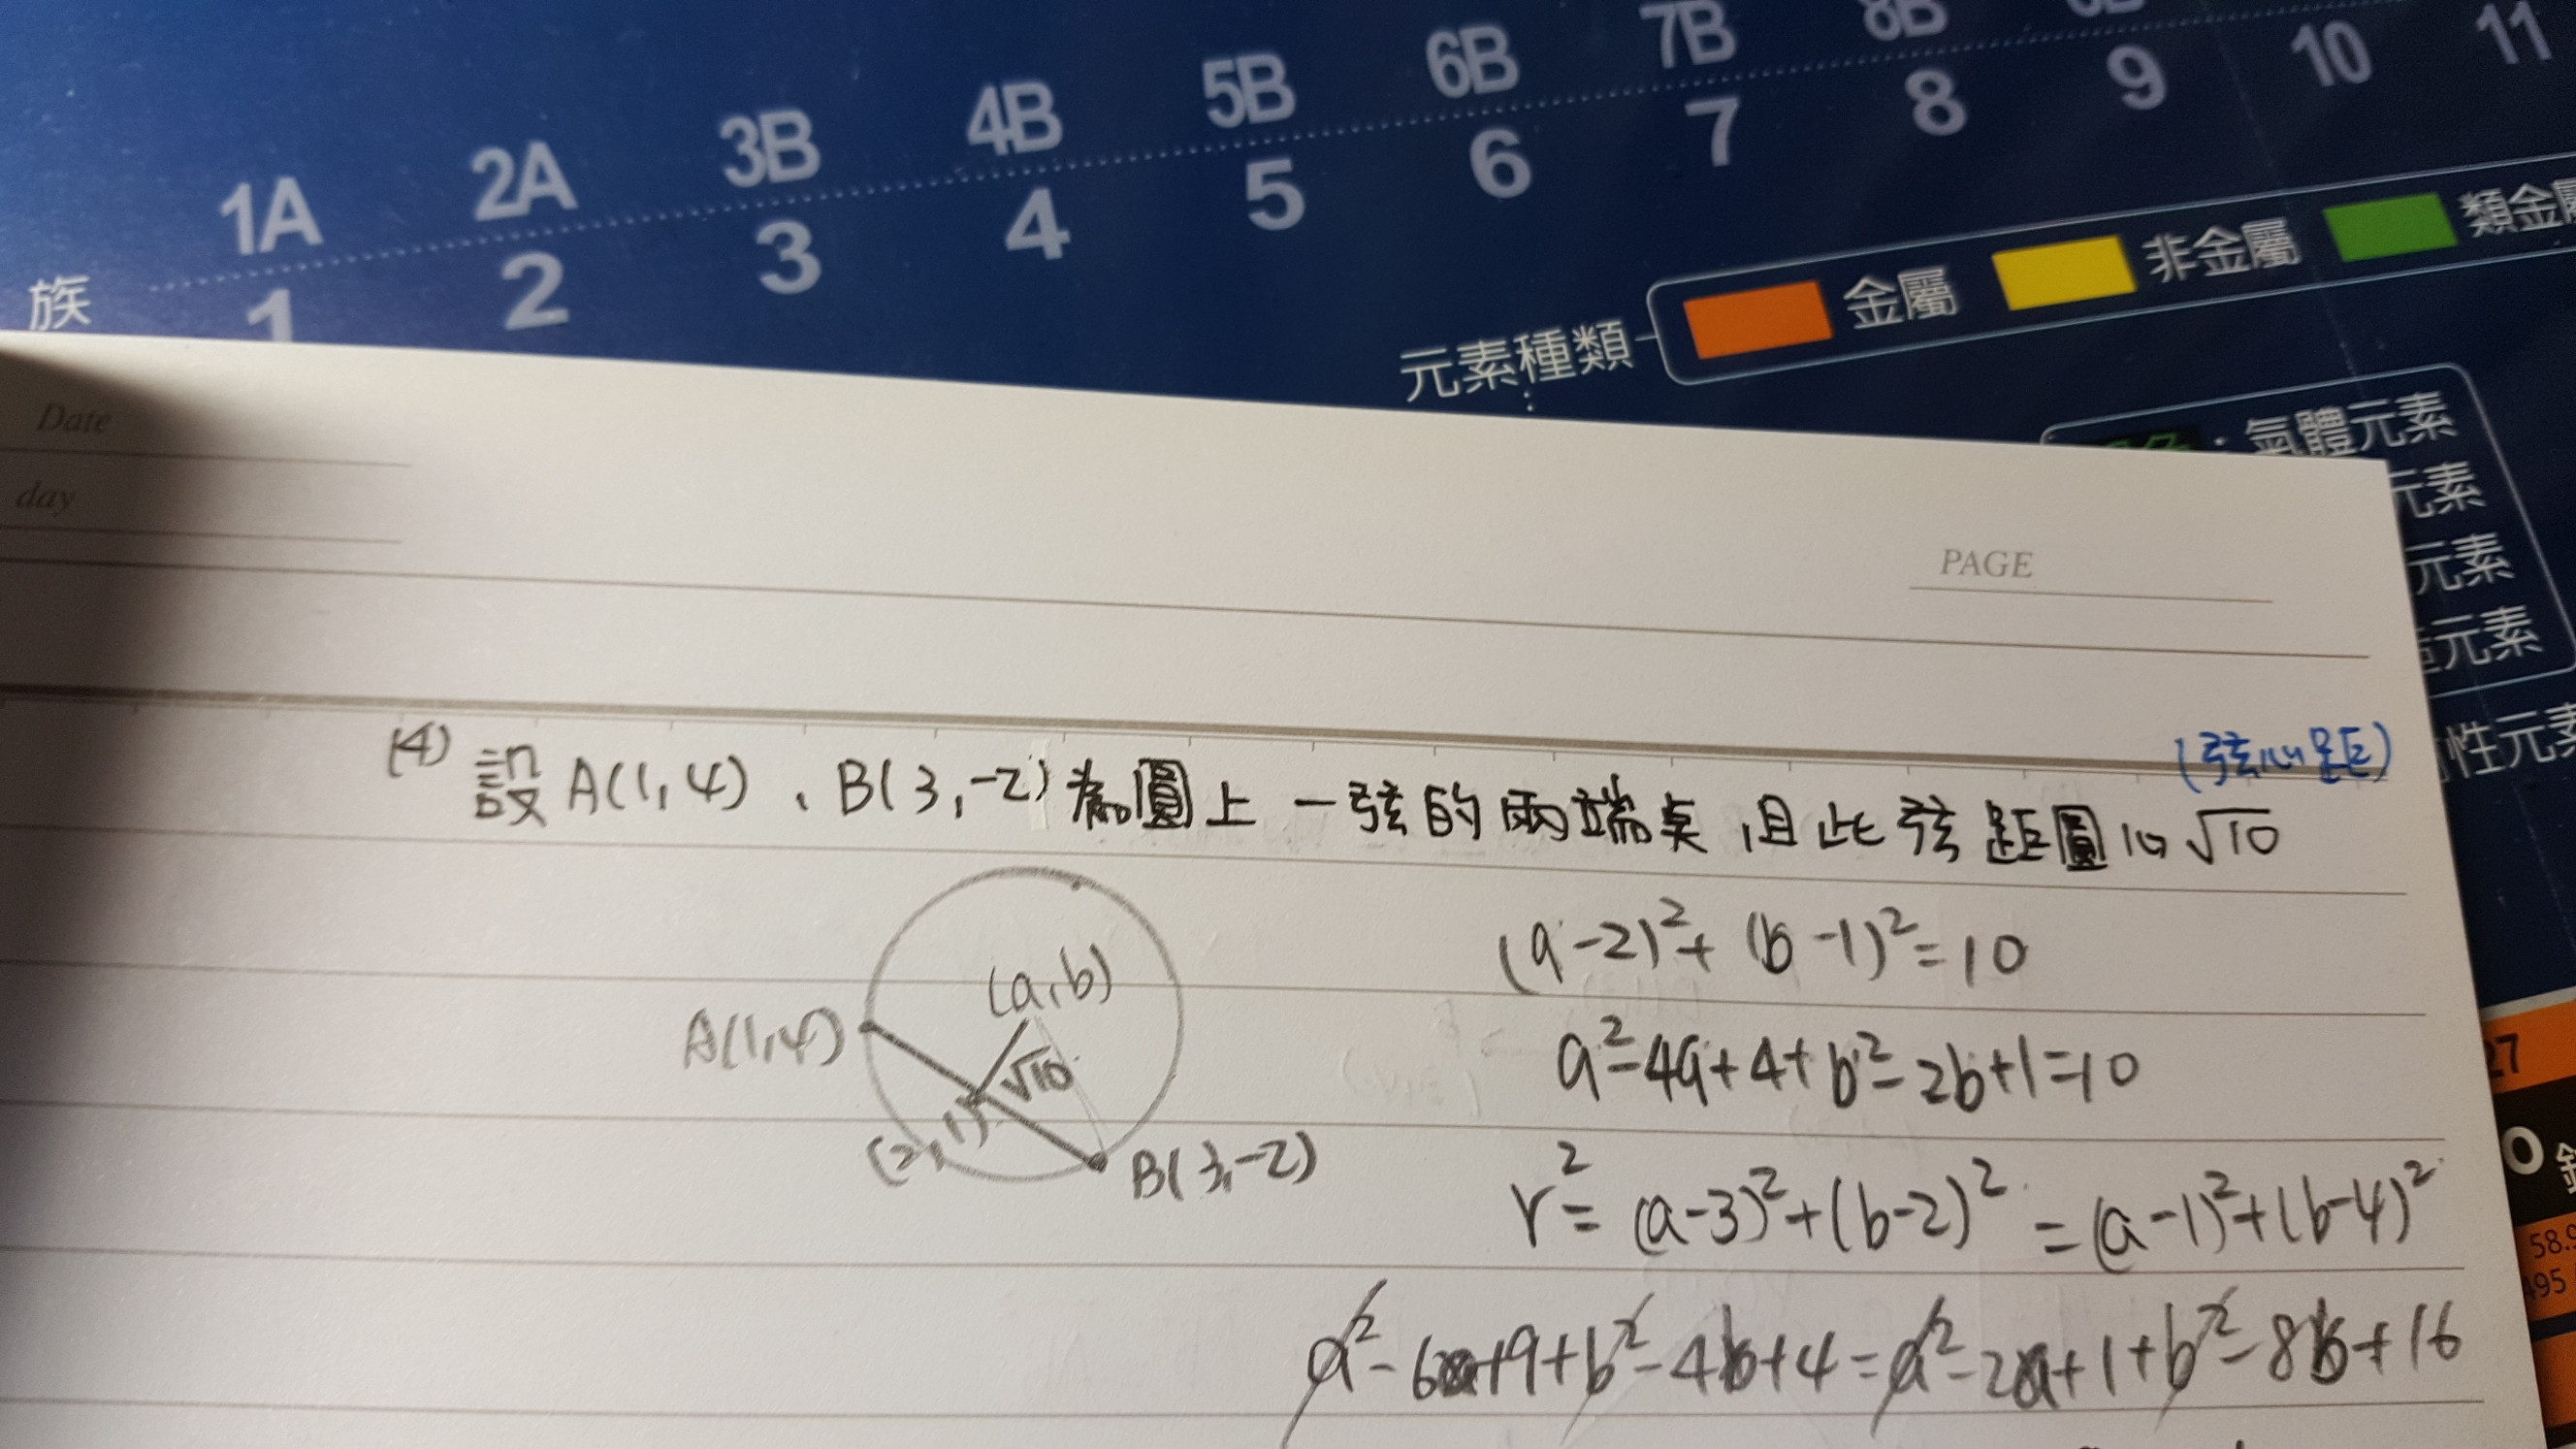 1A 2A 3B 4B 5B 6B 7B 8B
族 1 2 3 4 5 6 7 8 9 10 11
元素種類 金屬 非金屬 類金屬
：氣體元素
元素
元素
造元素
性元素
Date
day
PAGE
(弦心距)
(4) 設A(1,4)、B(3,-2)為圓上一弦的兩端點,且此弦距圓心√10
(a-2)²+(b-1)²=10
(a,b)
A(1,4)
√10
a²-4a+4+b²-2b+1=10
(2,1)
B(3,-2)
r²=(a-3)²+(b-2)²=(a-1)²+(b-4)²
a²-6a+9+b²-4b+4=a²-2a+1+b²-8b+16
27
58.9
495